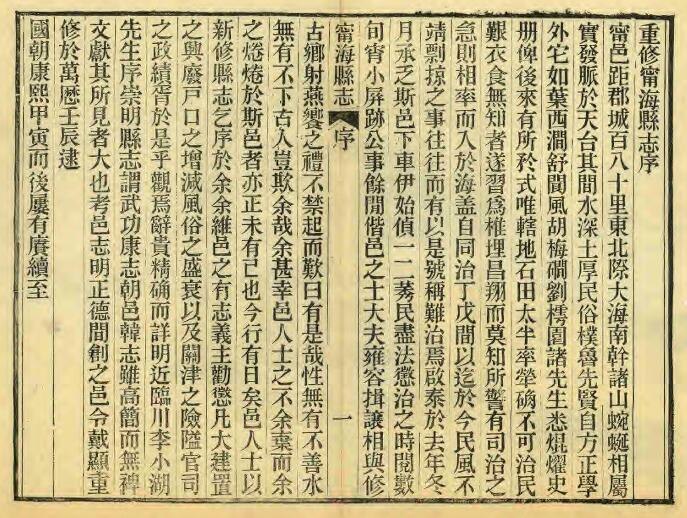 重修甯海縣志序
甯邑距郡城百八十里東北際大海南幹諸山蜿蜒相屬
實發脈於天台其間水深土厚民俗樸魯先賢自方正學
外它如葉西澗舒閬風胡梅磵劉樗園諸先生悉焜燿史
册俾後來有所矜式唯轄地石田太半率犖确不可治民
艱衣食無知者遂習為椎埋昌翔而莫知所警有司治之
急則相率而入於海盖自同治丁戊間以迄於今民風不
靖剽掠之事往往而有以是號稱難治焉啟泰於去年冬
月承乏斯邑下車伊始偵一二莠民盡法懲治之時閱數
旬宵小屏跡公事餘閒偕邑之士大夫雍容揖讓相與修
甯海縣志 序 一
古鄉射燕饗之禮不禁起而歎曰有是哉性無有不善水
無有不下古人豈欺余哉余甚幸邑人士之不余棄而余
之惓惓於斯邑者亦正未有已也今行有日矣邑人士以
新修縣志乞序於余余維邑之有志義主勸懲凡大建置
之興廢戶口之增減風俗之盛衰以及關津之險隘官司
之政績胥於是乎觀焉辭貴精确而詳明近臨川李小湖
先生序崇明縣志謂武功康志朝邑韓志雖高簡而無裨
文獻其所見者大也考邑志明正德間創之邑令戴顯重
修於萬厯壬辰逮
國朝康熙甲寅而後屢有賡續至